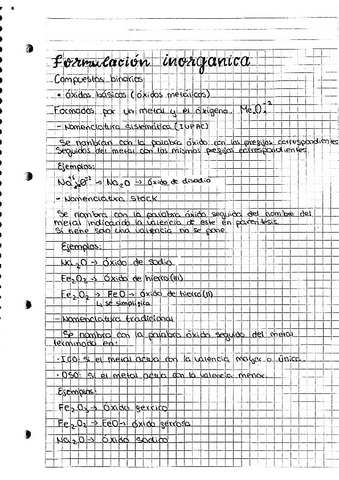 Formulación inorganica
Compuestos binarios
• Óxidos básicos (óxidos metálicos)
Formados por un metal y el oxígeno. Me₂Oₓ⁻²
- Nomenclatura sistemática (IUPAC)
Se nombran con la palabra óxido con los prefijos correspondientes
seguidos del metal con los mismos prefijos correspondientes.
Ejemplos:
Na⁺¹O⁻² → Na₂O → óxido de disodio
- Nomenclatura Stock
Se nombra con la palabra óxido seguida del nombre del
metal indicando la valencia de este en paréntesis.
Si tiene solo una valencia no se pone.
Ejemplos:
Na₂O → óxido de sodio
Fe₂O₃ → Óxido de hierro(III)
Fe₂O₂ → FeO → Óxido de hierro(II)
↳ se simplifica
- Nomenclatura tradicional
Se nombra con la palabra óxido seguido del metal
terminado en:
· ICO: Si el metal actúa con la valencia mayor o única.
· OSO: Si el metal actúa con la valencia menor.
Ejemplos:
Fe₂O₃ → Óxido férrico
Fe₂O₂ → FeO → óxido ferroso
Na₂O → óxido sódico